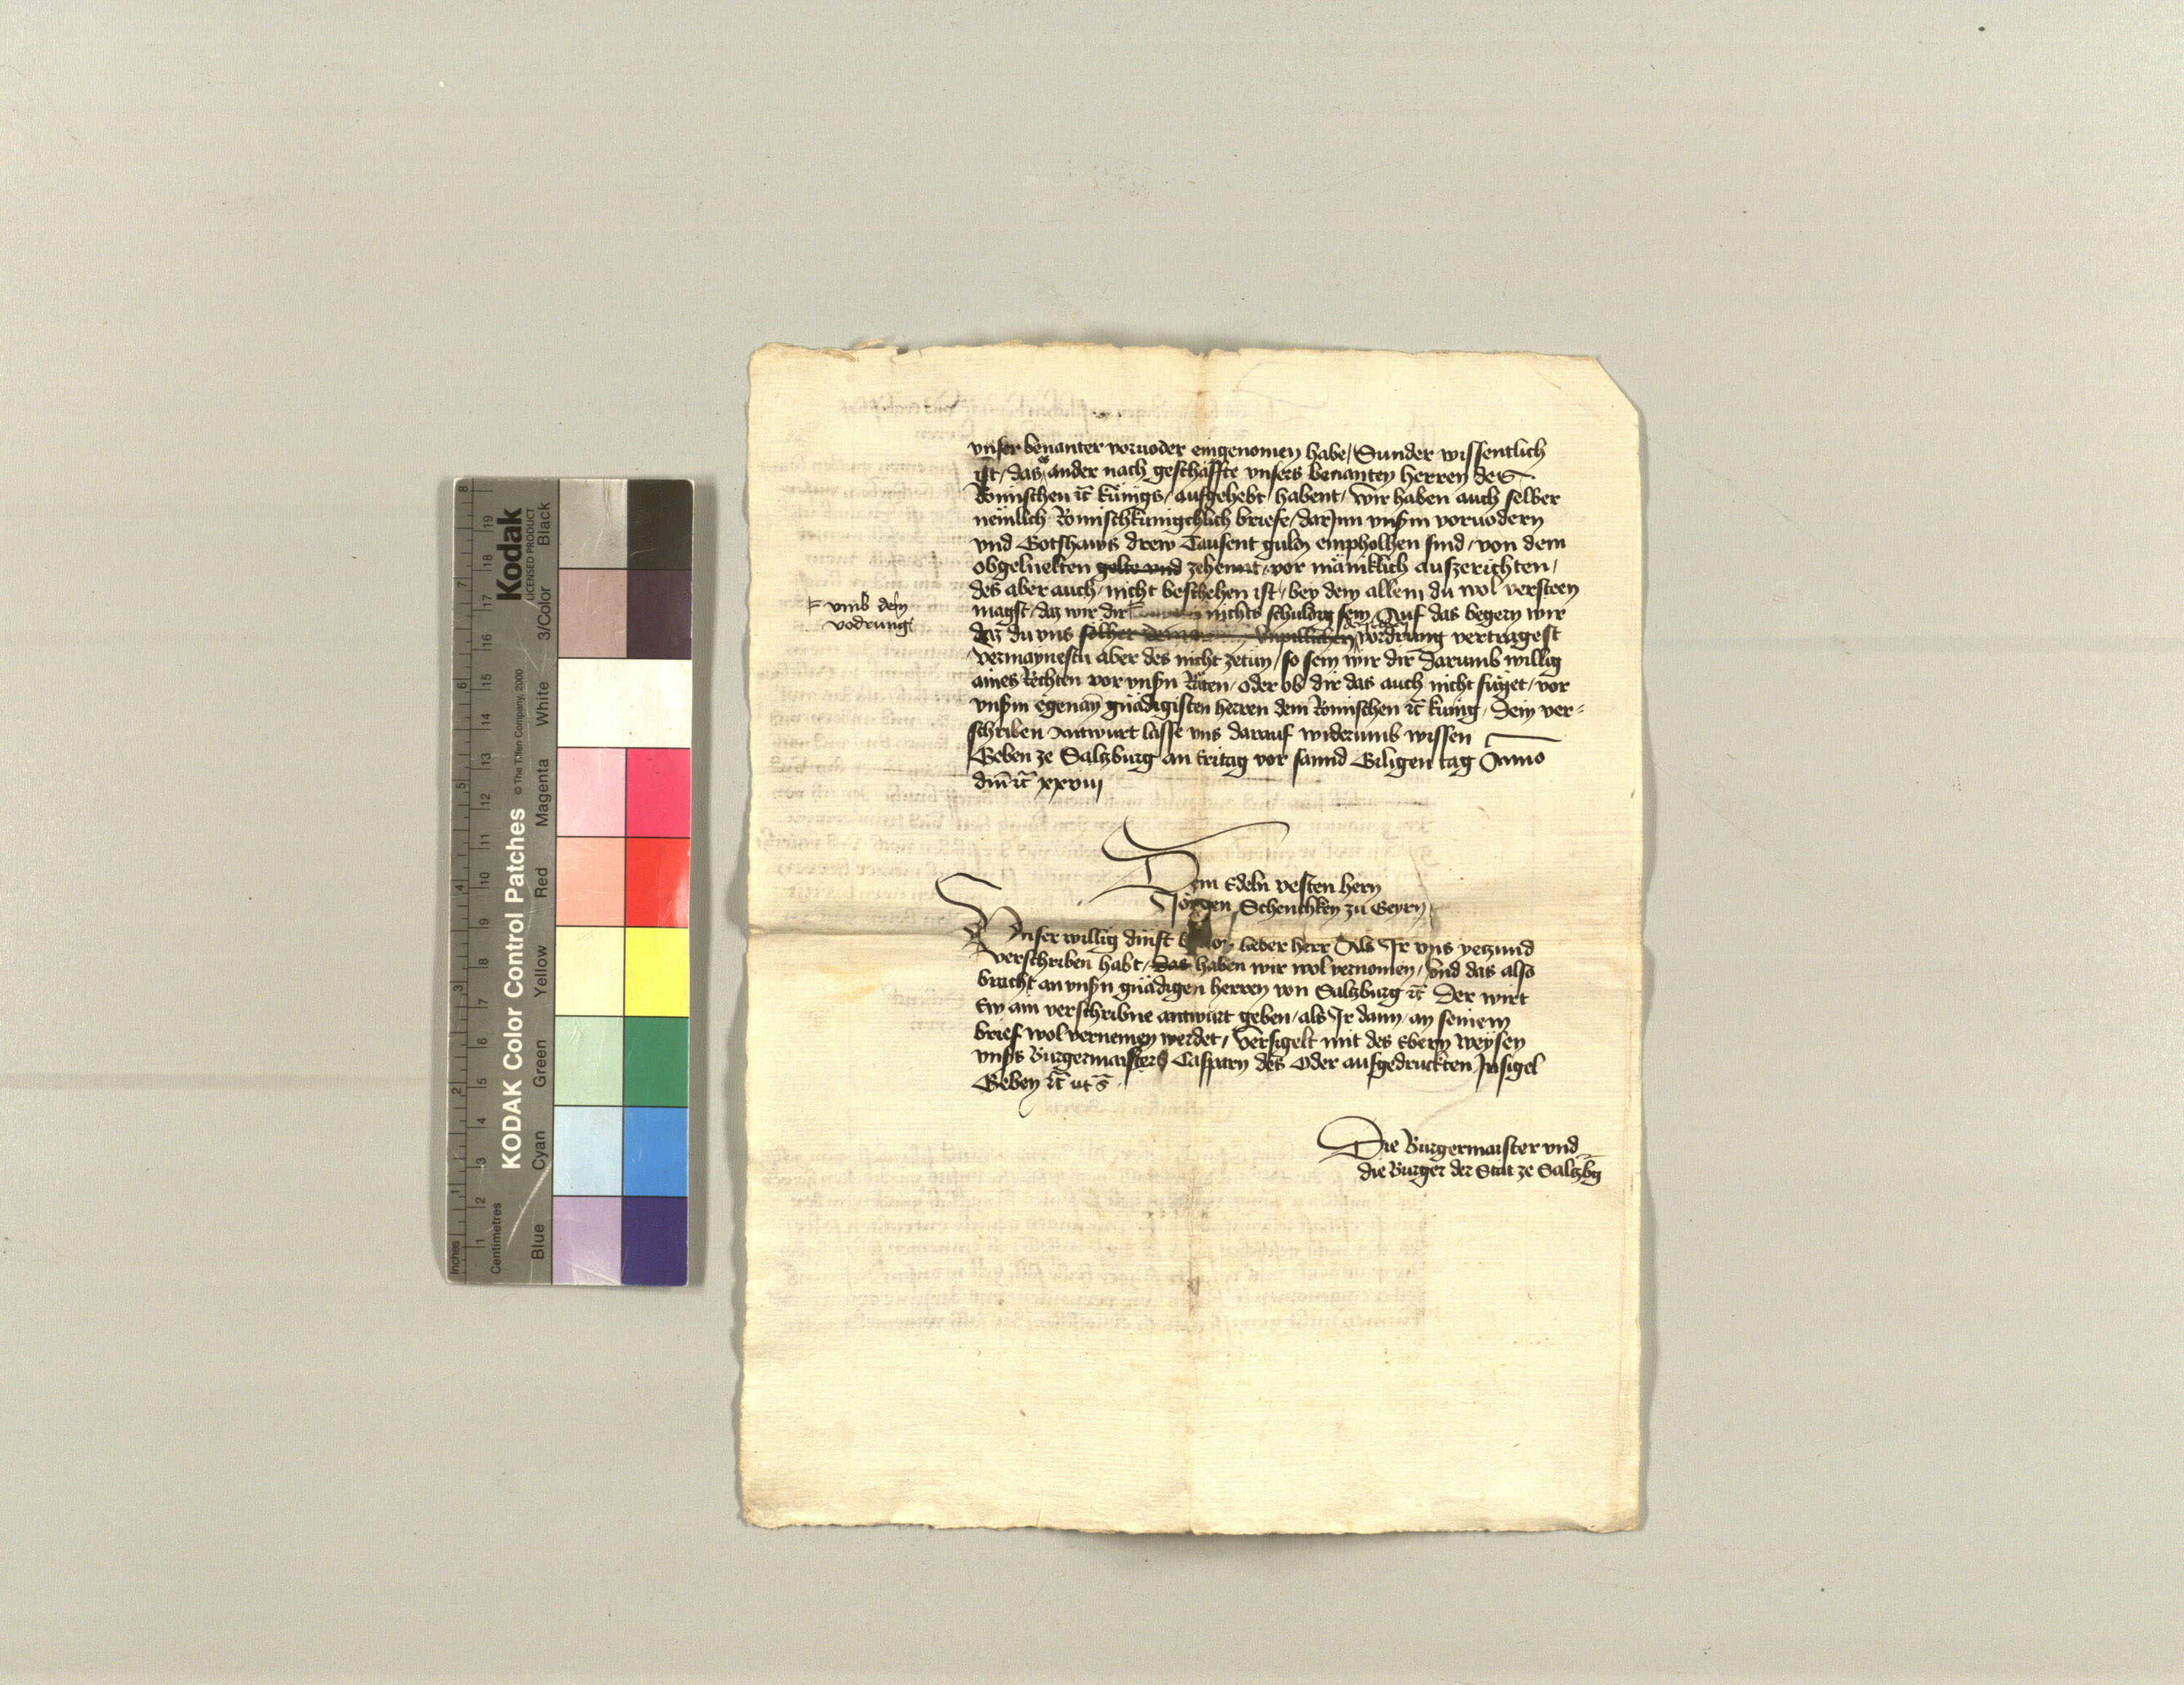 unser benanter voruoder eingenomen habe / Sunder wissentlich
ist / das es ander nach geschäffte unsers benanten herren des
Römischen etc künigs / aufgehebt habent / wir haben auch selber
nemlich Römischkünigchlich briefe / darjnn unsm voruodern
und Gotshaws drew Tausent guldn empholhen sind / von dem
obgeluekten gelte und zehennt / vor mäniklich auszerichten /
des aber auch / nicht beschehen ist / bey dem allem du wol versteen
magst / daz wir dir nichts schuldig sein / Auf das begern wir
daz du uns solher unpillichen vordrung vertragest
vermaynestu aber des nicht zetun / so sein wir dir darumb willig
aines Rechten vor unsn Räten / oder ob dir das auch nicht füget / vor
unsm egenan gnädigisten herren dem Römischen etc künig / Dein ver-
schriben Antwurt lasse uns darauf widerumb wissen
Geben ze Salzburg an Fritag vor sannd Giligen tag Anno
dm etc xxviii
umb dein
vodrung
Dem Edeln vesten hern
Jörgen Schenchken zu Geyrn
Unser willig dinst lieber herr Als Ir uns yetzund
verschriben habt / das haben wir wol vernomen / und das also
bracht an unsn gnädigen herren von Salzburg etc Der wirt
Ew ain verschribne antwurt geben / als Ir dann / an seinem
brief wol vernemen werdet / Versigelt mit des Erbern weysen
unsers Burgermaisters Casparn des Oder aufgedruckten Insigel
Geben etc ut s
Die Burgermaister und
die Burger der Stat ze Salzbg
Kodak
LICENSED PRODUCT
KODAK Color Control Patches
© The Tiffen Company, 2000
Black
3/Color
White
Magenta
Red
Yellow
Green
Cyan
Blue
Inches
1 2 3 4 5 6 7 8
Centimetres
1 2 3 4 5 6 7 8 9 10 11 12 13 14 15 16 17 18 19